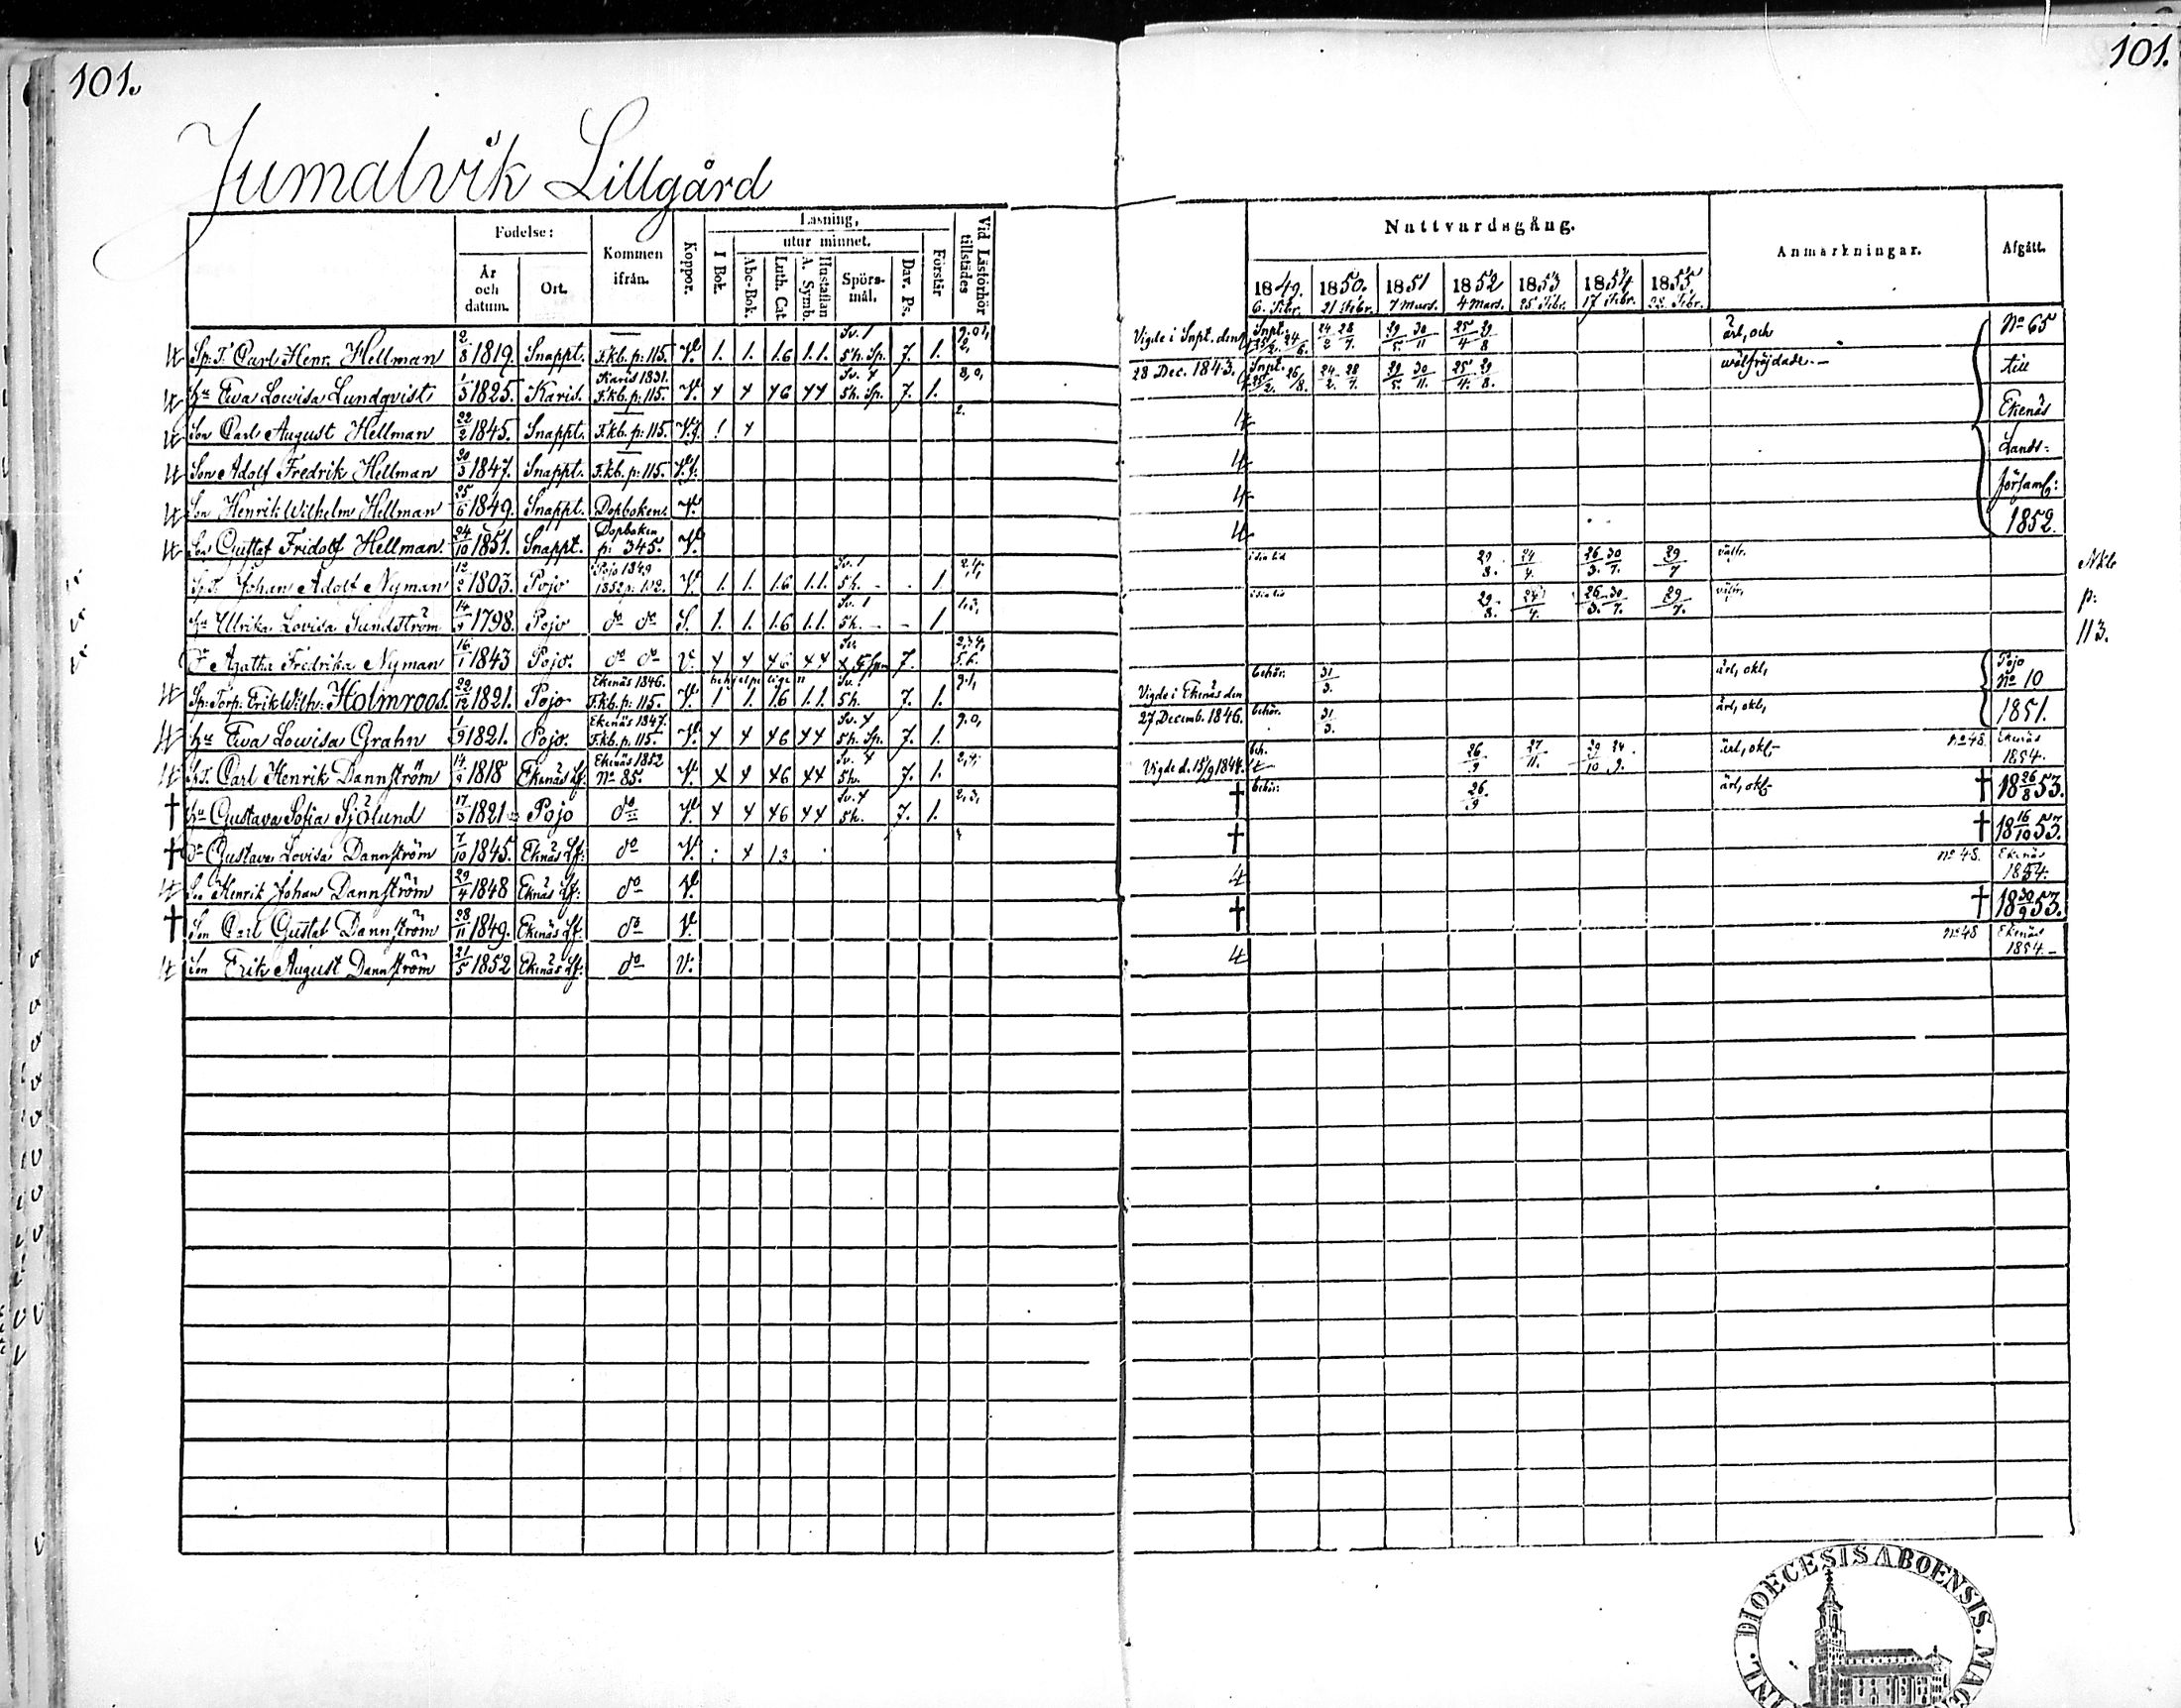 101.
101.
Jumalvik Lillgård
Födelse:
År och datum.
Ort.
Kommen ifrån.
Koppor.
Läsning,
I Bok.
utur minnet.
Abc-Bok.
Luth. Cat.
Hustaflan A. Symb.
Spörsmål.
Dav. Ps.
Förstår
Vid Läsförhör tillstädes
Nattvardsgång.
1849. 6. Febr.
1850. 21 Febr.
1851 7 Mars.
1852 4 Mars.
1853 25 Febr.
1854 17 Febr.
1855
Anmärkningar.
Afgått.
Sp. T. Carl Henr. Hellman 2/8 1819. Snappt. F.kb. p: 115. V. 1. 1. 1.6 1.1. Sv. 1 5h. Sp. 7. 1. Vigde i Snpt. den Snpt. 24/2 28/7. 29/5. 30/11 25/4 29/8 ärl, och No 65
Hu Ewa Lowisa Lundqvist 1825. Karis. Karis 1831. F.kb. p: 115. V. 5h. Sp. 7. 1. 28 Dec. 1843. Snpt. 24/2. 28/7. 29/5. 30/11. 25/4. 29/8. wälfrejdade.- till
Son Carl August Hellman 22/2 1845. Snappt. F.kb. p: 115. Ekenäs
Son Adolf Fredrik Hellman 20/3 1847. Snappt. F.kb. p: 115. Lands:
Son Henrik Wilhelm Hellman 25/6 1849. Snappt. Dopboken. V. församl:
Son Gustaf Fridolf Hellman. 24/10 1851. Snappt. Dopboken p: 345. V. 1852.
Sp. T. Johan Adolf Nyman 12/2 1803. Pojo Pojo 1849 V. 1. 1. 1.6 1.1. Sv. 1 5h. 1. 29/8. 24/4. 26/3. 30/7. 29/7 Nkb
Hu Ulrika Lovisa Sundström 1798. Pojo do do S. 1. 1. 1.6 1.1. Sv. 1 5h. 1 29/8. 24/4. 26/3. 30/7. 29/7. p:
Dr Agatha Fredrika Nyman 16/1 1843 Pojo. do do V. 7. 113.
Sp: Torp: Erik Wilh: Holmroos. 29/12 1821. Pojo Ekenäs 1846. F.kb. p: 115. V. 1 1. 1.6 1.1. 5h. 7. 1. Vigde i Ekenäs den behör. 31/3. ärl, okl, Pojo No 10
Hu Ewa Lowisa Grahn 1/9 1821. Pojo. Ekenäs 1847. F.kb. p: 115. V. 5h. Sp. 7. 1. 9.0, 27 Decemb. 1846. behör. 31/3. ärl, okl, 1851.
Carl Henrik Dannström 14/9 1818 Ekenäs Lf. Ekenäs 1852 No 85. V. 5h. 7. 1. Vigde d. 15/9 1844. 26/9 27/11. 29/10 24/9. ärl, okl- No 48. Ekenäs 1854.
Hu Gustava Sofia Sjölund 17/3 1821 Pojo do V. 5h. 7. 1. 2,3, † behör: 26/9 ärl, okl- † 18 26/8 53.
Dr Gustava Lovisa Dannström 7/10 1845. Eknäs Lf: do V. † † 18 16/10 53.
Son Henrik Johan Dannström 29/4 1848 Eknäs Lf: do V. No 48. Ekenäs 1854.
Son Carl Gustaf Dannström 28/11 1849. Ekenäs Lf. do V. † † 18 30/9 53.
Son Erik August Dannström 21/5 1852 Ekenäs Lf: do V. No 48 Ekenäs 1854.-
DIOECESIS ABOENSIS.